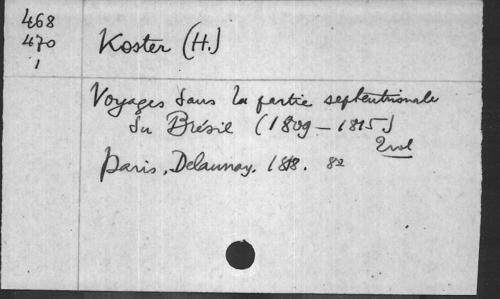 468
470
1
Koster (H.)
Voyages dans la partie septentrionale
du Brésil (1809-1815)
2 vol
Paris, Delaunay, 1818. 8º